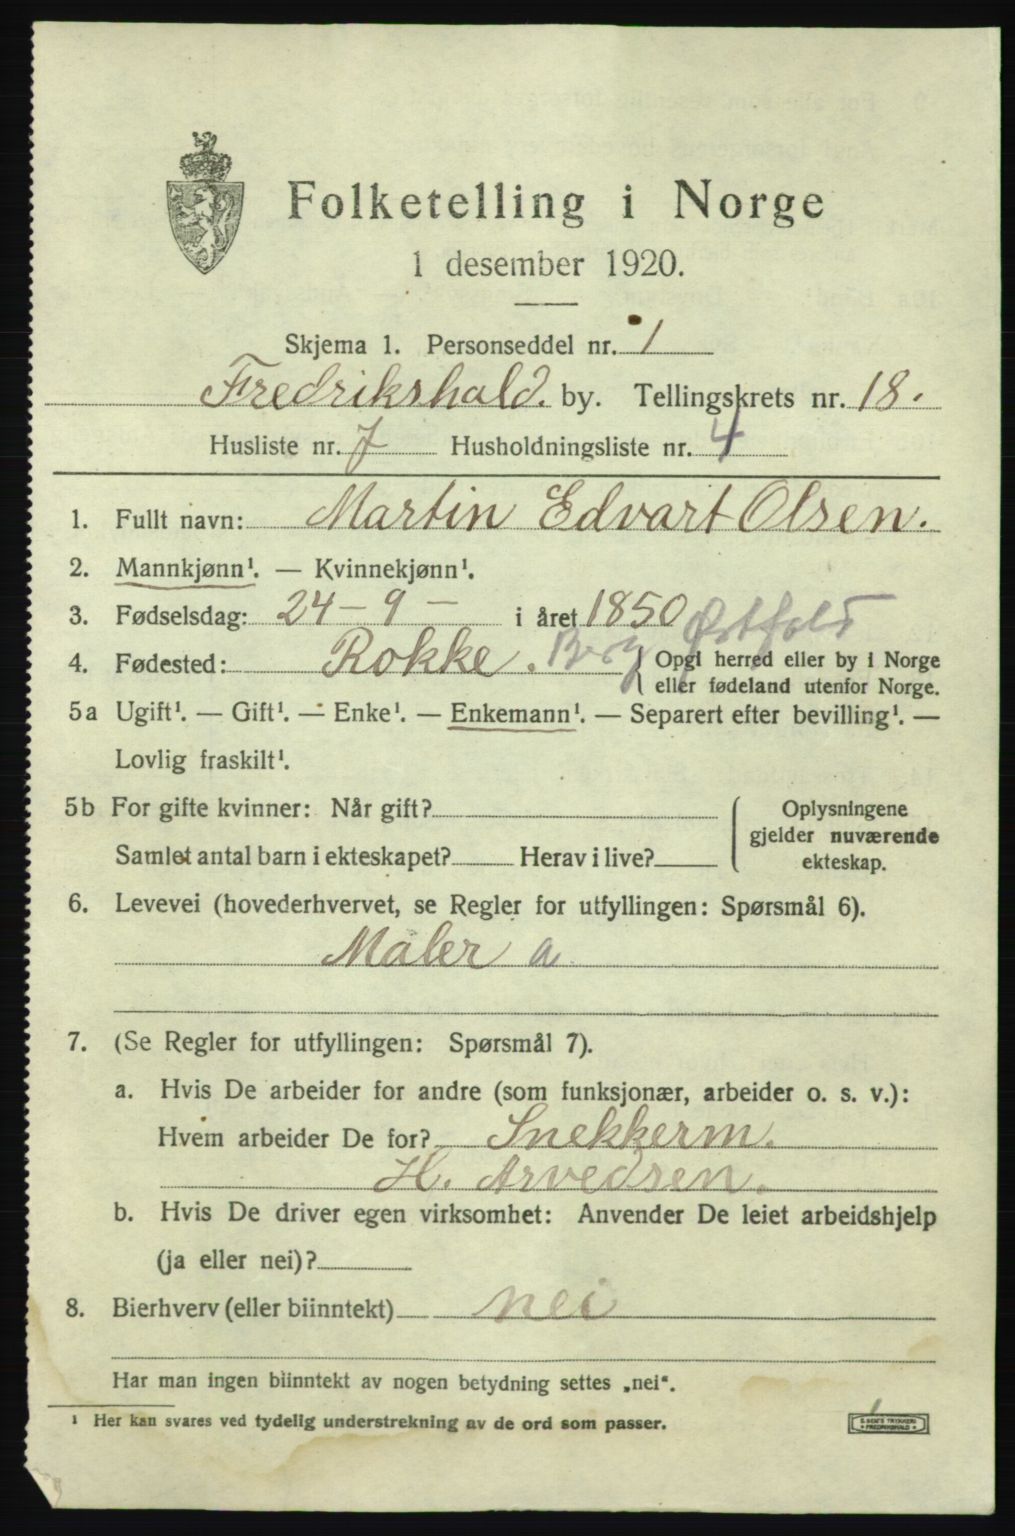 Folketelling i Norge
1 desember 1920.
Skjema 1. Personseddel nr. 1
Fredrikshald. by. Tellingskrets nr. 18.
Husliste nr. 7 Husholdningsliste nr. 4
1. Fullt navn: Martin Edvart Olsen.
2. Mannkjønn¹. — Kvinnekjønn¹.
3. Fødselsdag: 24 - 9 - i året 1850
4. Fødested: Rokke. Berg Østfold
Opgi herred eller by i Norge
eller fødeland utenfor Norge.
5a Ugift¹. — Gift¹. — Enke¹. — Enkemann¹. — Separert efter bevilling¹. —
Lovlig fraskilt¹.
5b For gifte kvinner: Når gift?
Samlet antal barn i ekteskapet? Herav i live?
Oplysningene
gjelder nuværende
ekteskap.
6. Levevei (hovederhvervet, se Regler for utfyllingen: Spørsmål 6).
Maler a
7. (Se Regler for utfyllingen: Spørsmål 7).
a. Hvis De arbeider for andre (som funksjonær, arbeider o. s. v.):
Hvem arbeider De for? Snekkerm.
H. Arvedsen.
b. Hvis De driver egen virksomhet: Anvender De leiet arbeidshjelp
(ja eller nei)?
8. Bierhverv (eller biinntekt) nei
Har man ingen biinntekt av nogen betydning settes „nei“.
¹ Her kan svares ved tydelig understrekning av de ord som passer.
FREDRIKSHALD